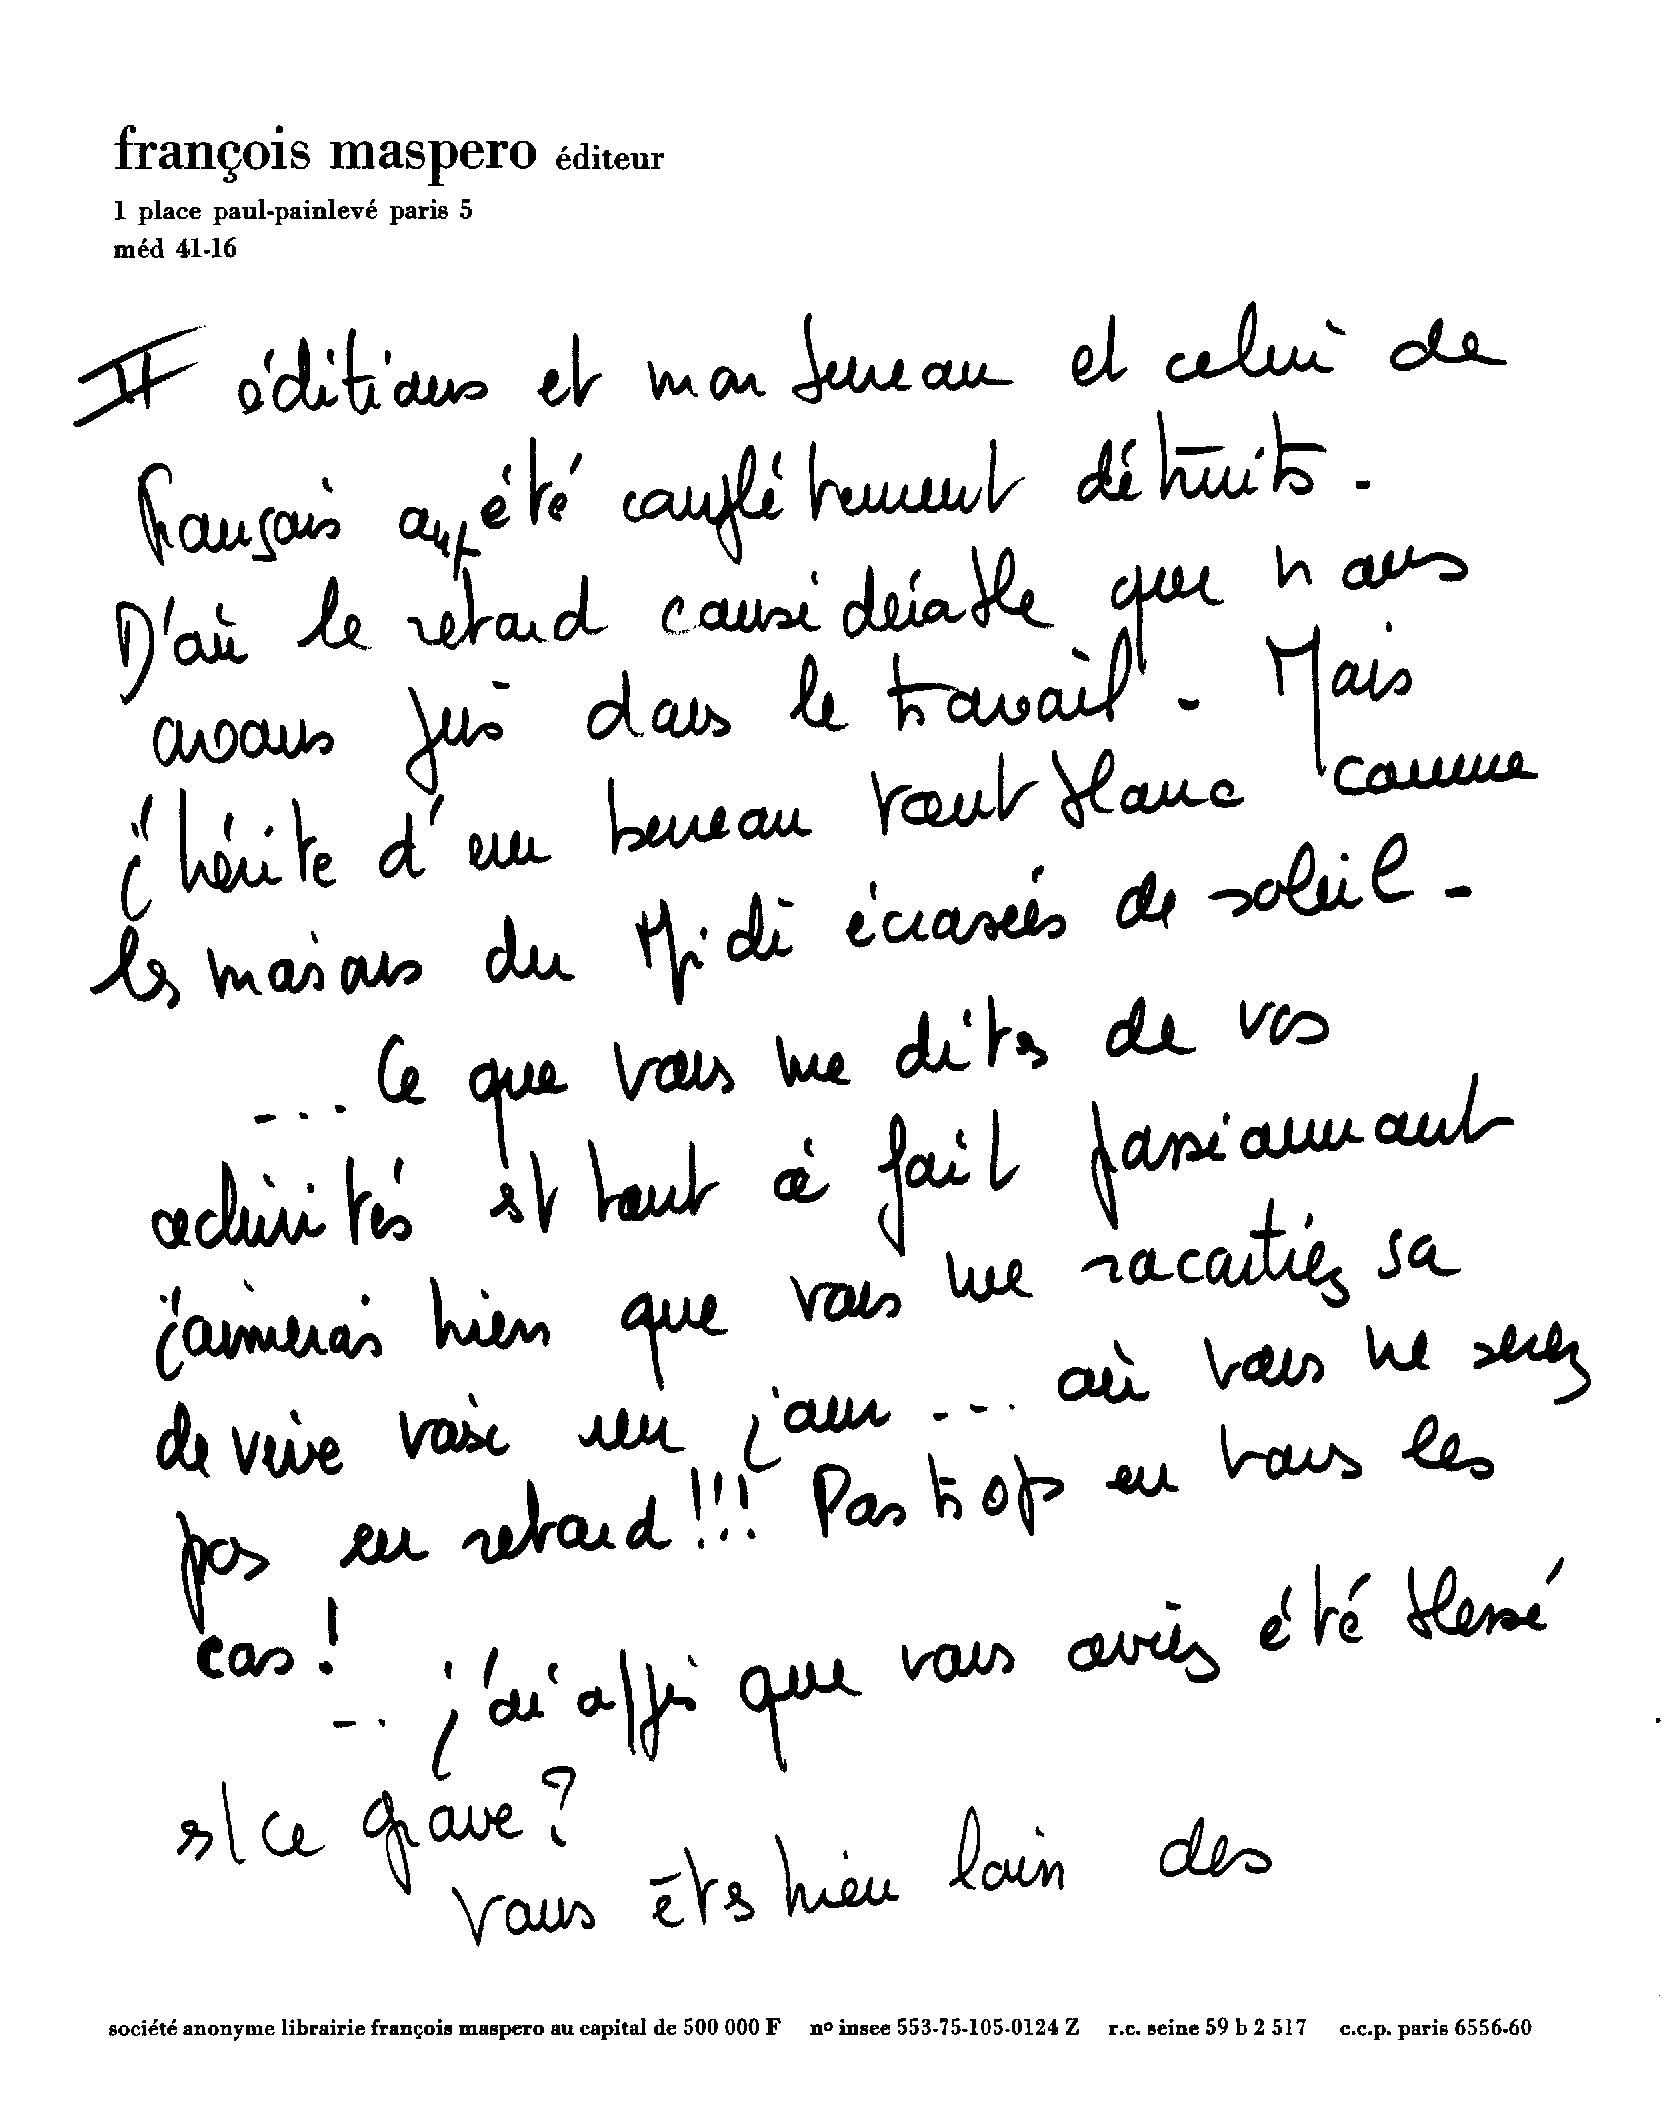 françois maspero éditeur
1 place paul-painlevé paris 5
méd 41-16
II éditions et mon bureau et celui de
François ont été complétement détruits -
D'où le retard considérable que nous
avons pris dans le travail - Mais
j'hérite d'un bureau tout blanc comme
les maisons du Midi écrasées de soleil -
... Ce que vous me dites de vos
activités est tout à fait passionnant
j'aimerais bien que vous me racontiez ça
de vive voix un jour ... où vous ne serez
pas en retard!!! Pas trop en tous les
cas!
... j'ai appris que vous aviez été blessé
est ce grave?
Vous êtes bien loin des
société anonyme librairie françois maspero au capital de 500 000 F nº insee 553-75-105-0124 Z r.c. seine 59 b 2 517 c.c.p. paris 6556-60